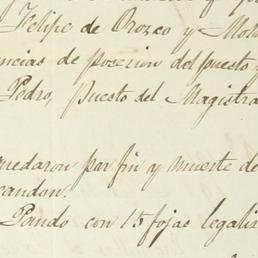 Felipe de Orozco y Mol
ncias de posecion del puesto y
Pedro, puesto del Magistra
quedaron por fin y muerte de
candon.
Pando con 15 fojas legalis